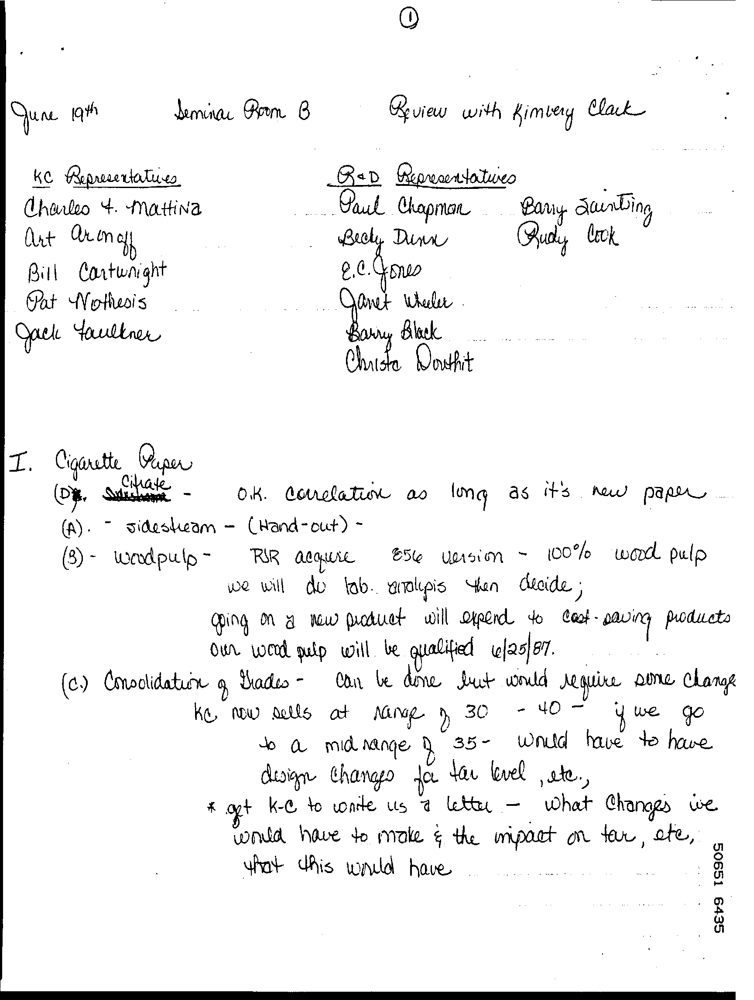 1
June 19th Seminar Room B Review with Kimbery Clark
KC Representatives R&D Representatives
Charles F. Mattina Paul Chapman Barry Saintsing
Art Aronoff Becky Dunn Rudy Cook
Bill Cartwright E.C. Jones
Pat Nothesis Janet Wheeler
Jack Faulkner Barry Black
Christa Douthit
I. Cigarette Paper
(D) Citrate - O.K. correlation as long as it's new paper
(A). - sidestream - (Hand-out) -
(B) - woodpulp - RJR acquire 856 version - 100% wood pulp
we will do lab. analysis then decide;
going on a new product will expend to cost-saving products
Our wood pulp will be qualified 6/25/87.
(C.) Consolidation of Grades - Can be done but would require some change
KC now sells at range of 30 - 40 - if we go
to a mid range of 35 - would have to have
design changes for tar level, etc.,
* get K-C to write us a letter - what changes we
would have to make & the impact on tar, etc,
that this would have
50651 6435